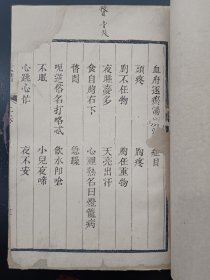 血府逐瘀湯所治症目
頭疼 胸疼
胸不任物 胸任重物
夜睡夢多 天亮出汗
食自胸右下 心裡熱名曰燈籠病
瞀悶 急躁
呃逆俗名打咯忒 飲水即嗆
不眠 小兒夜啼
心跳心忙 夜不安